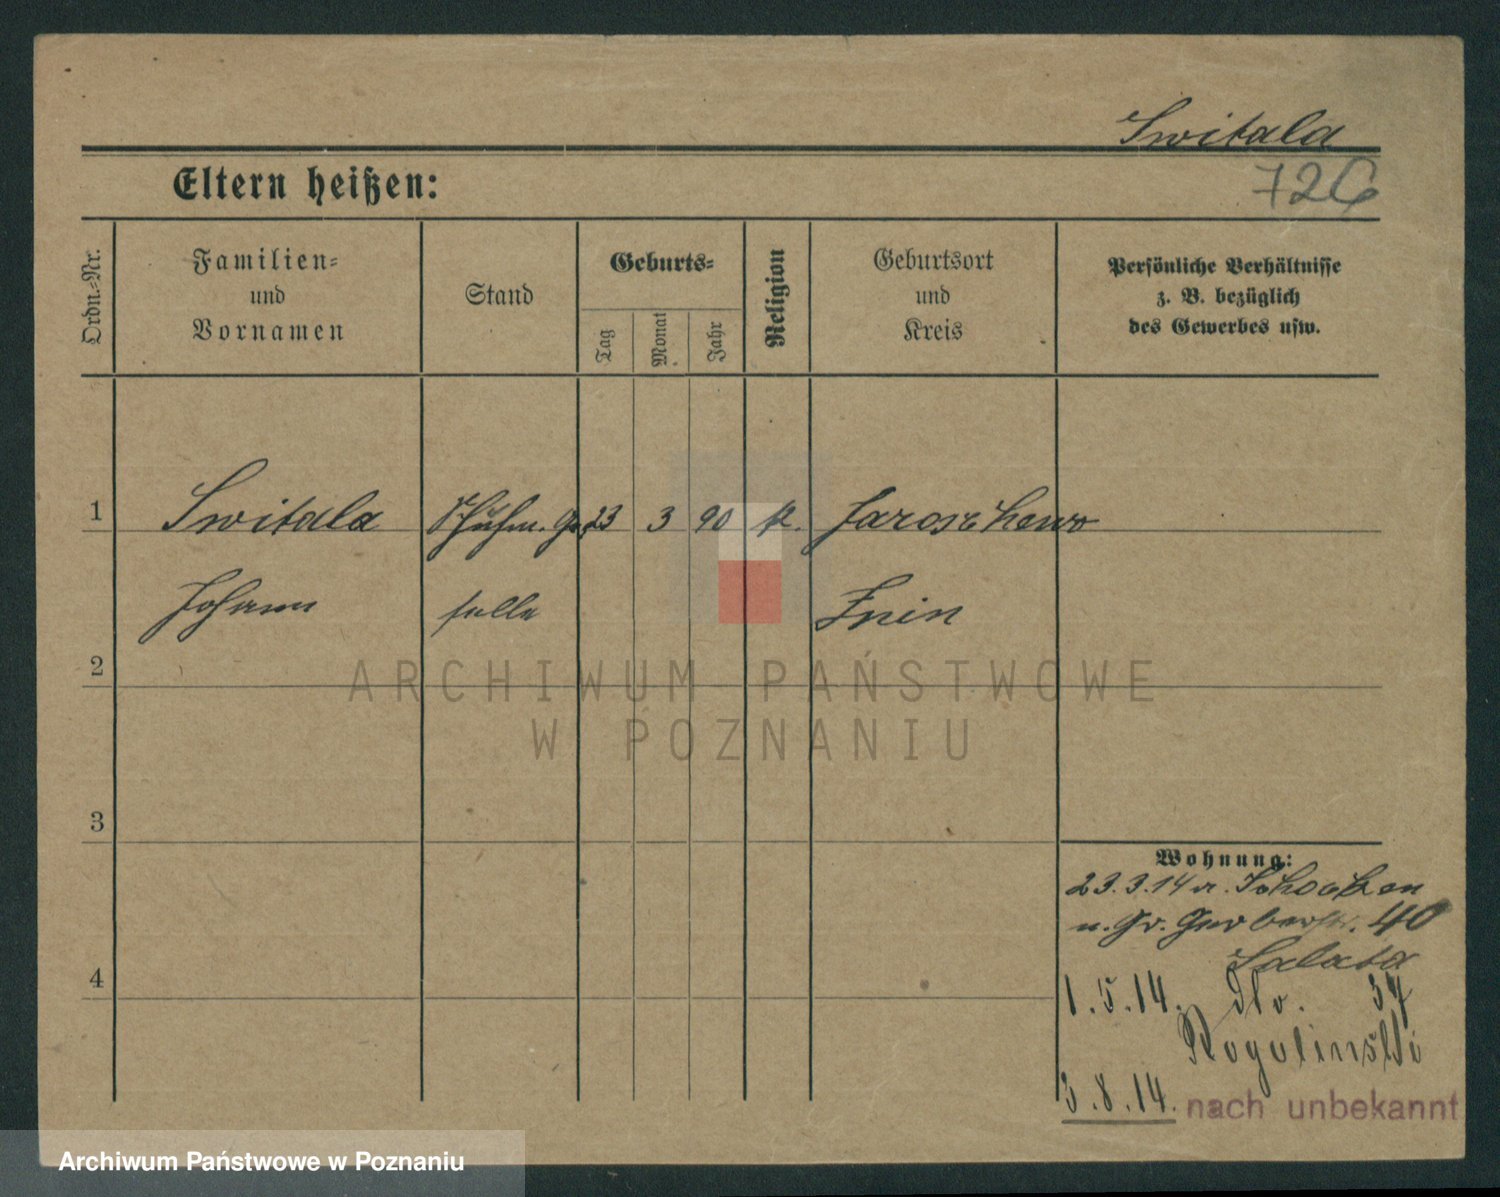 Switala
726
Eltern heißen:
Ordn.=Nr.
Familien=
und
Vornamen
Stand
Geburts=
Tag
Monat
Jahr
Religion
Geburtsort
und
Kreis
Persönliche Verhältnisse
z. B. bezüglich
des Gewerbes usw.
1 Switala Schuhm. Ge 23 3 90 k. Jaroschewo
Johann selle Znin
2
3
4
Wohnung:
23.3.14 v. Schocken
n. Gr. Gerberstr. 40
Salata
1.5.14. do. 37
Rogolinski
3.8.14. nach unbekannt
ARCHIWUM PAŃSTWOWE
W POZNANIU
Archiwum Państwowe w Poznaniu